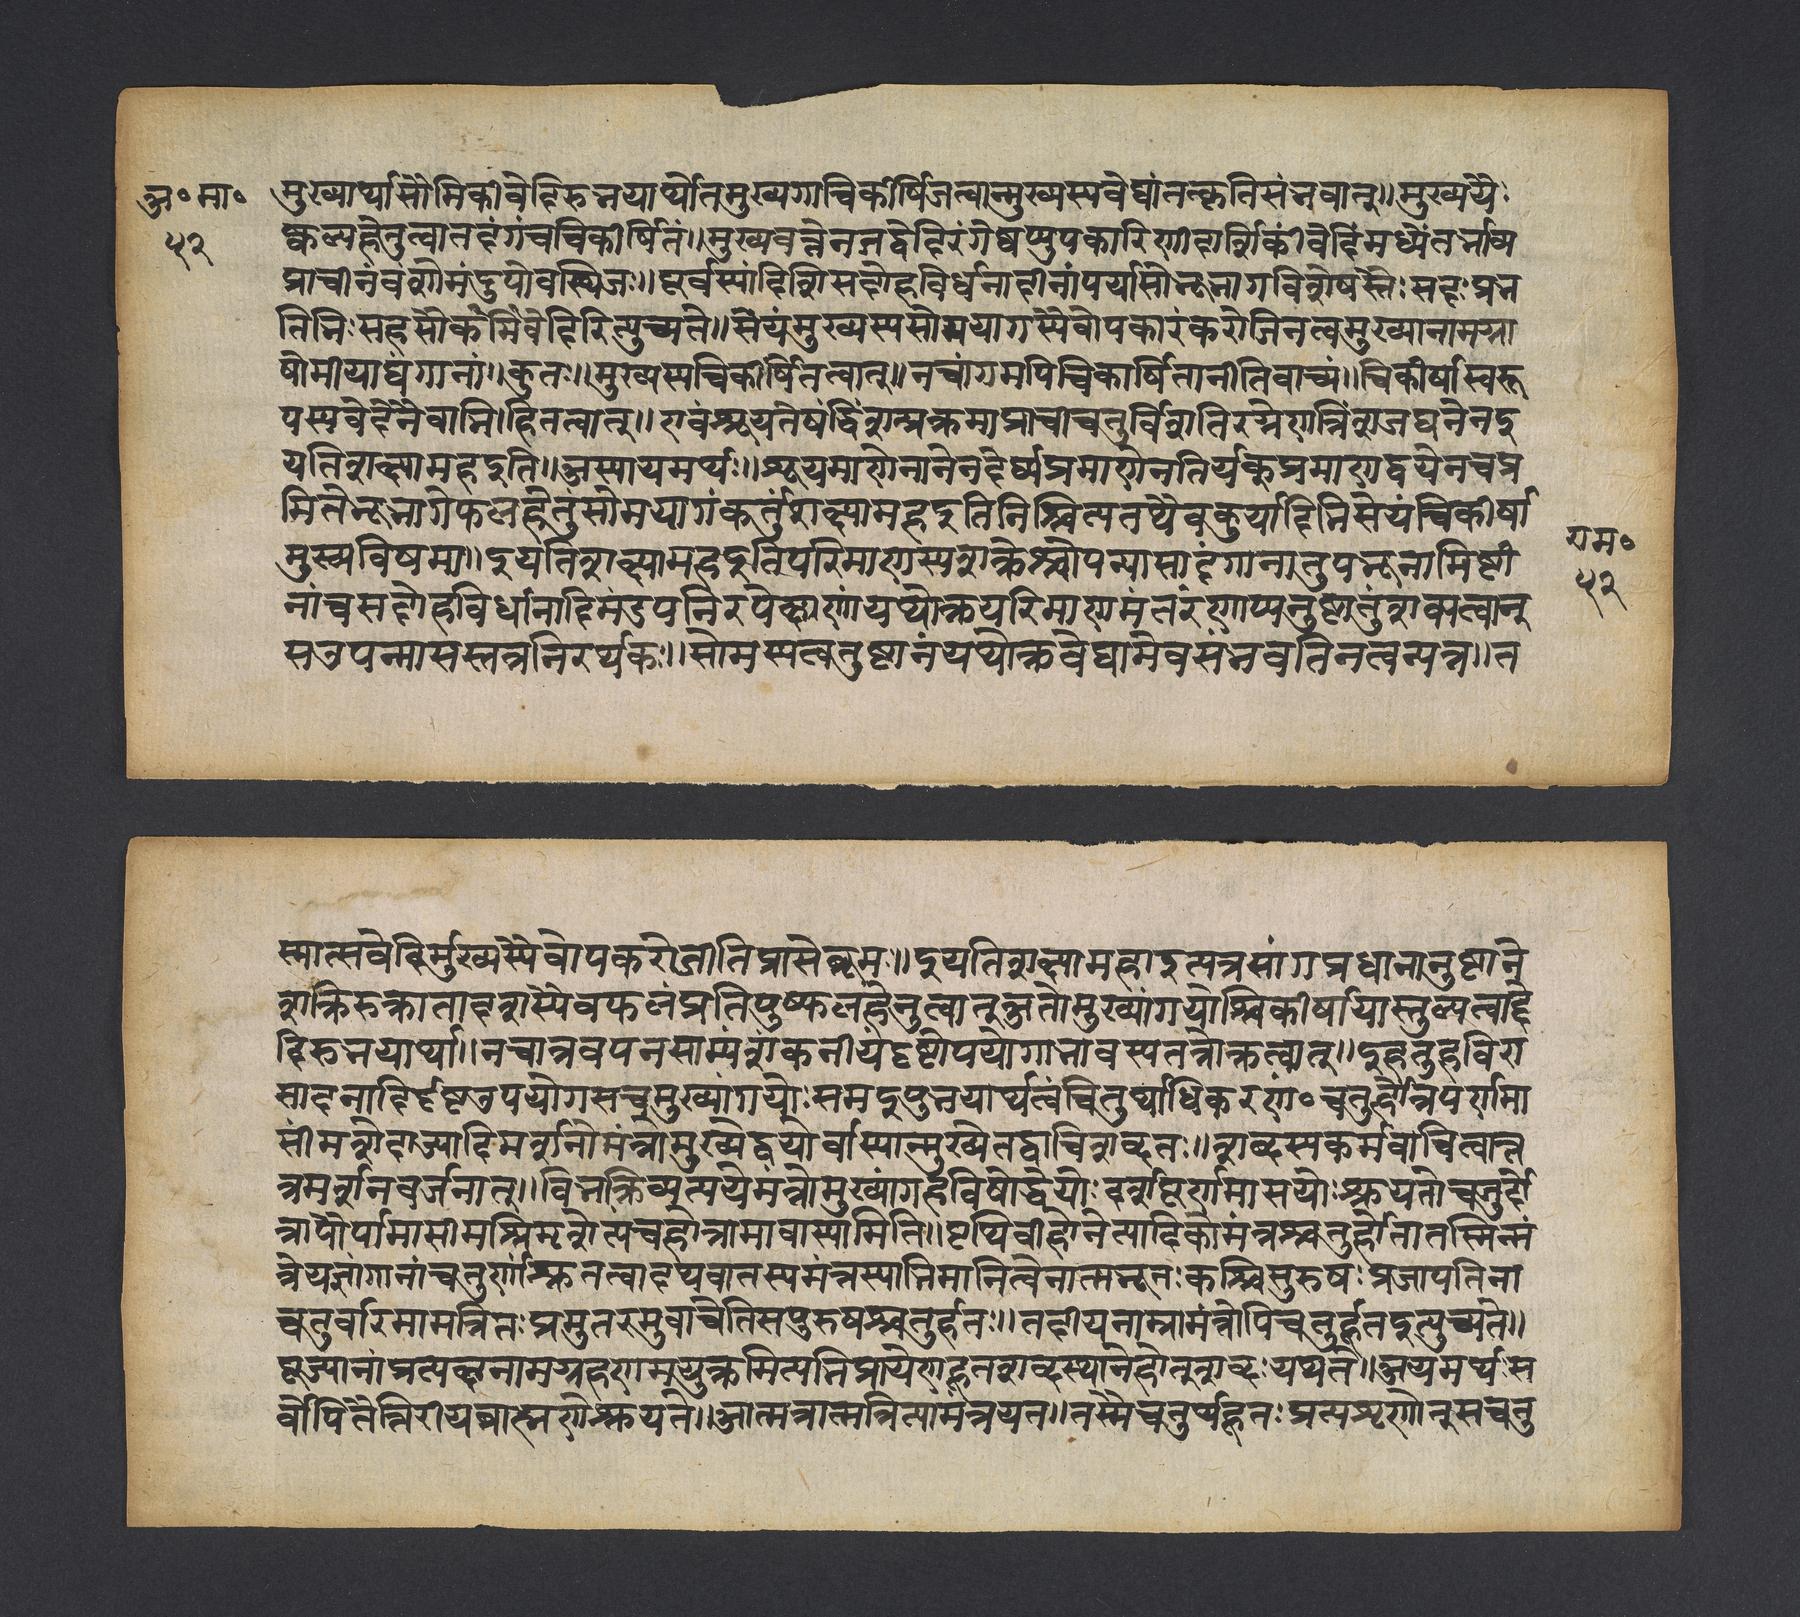 अ॰मा॰
५२
मुख्यार्थासौमिकीवेदिरुभयार्थेतिमुख्यगाचिकीर्षितत्वान्मुख्यस्यवेद्यांतत्कृतिसंभवात्॥मुख्यस्यैः
फलहेतुत्वात्तदंगंचचिकीर्षितं॥मुख्यवत्तेनतद्वेदिरंगेषप्युपकारिणीदार्शिकीवेदिमध्येंतर्भाव्य
प्राचीनवंशोमंडपोवस्थितः॥पूर्वस्यांदिशिसदोहविर्धानादीनांपर्याप्तोन्यभागविशेषस्तैःसदःप्रभृ
तिभिःसहसौमिकीवेदिरित्युच्यते॥सेयंमुख्यस्यसोमयागस्यैवोपकारंकरोतिनत्वमुख्यानामग्नी
षोमीयाद्यंगानां॥कुतः॥मुख्यस्यचिकीर्षितत्वात्॥नचांगमपिचिकीर्षितानीतिवाच्यं॥चिकीर्षास्वरू
पस्यवेदेनैवाभिहितत्वात्॥एवंश्रूयतेषट्त्रिंशत्प्रक्रमाप्राचीचतुर्विंशतिरग्रेणत्रिंशज्जघनेनइ
यतिशक्ष्यामहइति॥अस्यायमर्थः॥श्रूयमाणेनानेनदैर्घ्यप्रमाणेनतिर्यक्प्रमाणद्वयेनचप्र
मितेभूभागेफलहेतुसोमयागंकर्तुंशक्ष्यामहइतिनिश्चित्यतथैवकुर्यादितिसेयंचिकीर्षा
मुख्यविषया॥इयतिशक्ष्यामहइतिपरिमाणस्यशक्तेश्चोपन्यासादंगानामनुपन्यासात्
नांचसदोहविर्धानादिमंडपनिरपेक्षाणांयथोक्तपरिमाणमंतरेणाप्यनुष्ठातुंशक्यत्वात्
सउपन्यासस्तत्रनिरर्थकः॥सोमस्यत्वनुष्ठानंयथोक्तवेद्यामेवसंभवतिनत्वन्यत्र॥त
राम॰
५२
स्मात्सवेदिर्मुख्यस्यैवोपकरोतीतिप्राप्तेब्रूमः॥इयतिशक्ष्यामहाइत्यत्रसांगप्रधानानुष्ठाने
शक्तिरुक्तातादृशस्यैवफलंप्रतिपुष्कलहेतुत्वात्अतोमुख्यांगयोश्चिकीर्षायास्तुल्यत्वाद्वे
दिरुभयार्था॥नचात्रवपनसाम्यंशंकनीयंदृष्टोपयोगाभावस्यतत्रोक्तत्वात्॥इहतुहविरा
सादनादिर्दृष्टउपयोगस्सचमुख्यांगयोःसमइत्युभयार्थत्वं॥चतुर्थाधिकरणं॰चतुर्होत्रापौर्णमा
सीमभिमृशेदित्यादिमर्शनेमंत्रोमुख्येद्वयोर्वास्यान्मुख्येतद्वाचिशब्दतः॥शब्दस्यकर्मवाचित्वान्न
त्रमर्शनवर्जनात्॥विभक्तिव्यत्ययेमंत्रोमुख्यांगहविषोर्द्वयोः॥दर्शपूर्णमासयोःश्रूयतेचतुर्हो
त्रापौर्णमासीमभिमृशेत्पंचहोत्रामावास्यामिति॥पृथिवीहोतेत्यादिकोमंत्रश्चतुर्होतातस्मिन्मं
त्रेयज्ञांगानांचतुर्णांश्रुतत्वात्यद्वातस्यमंत्रस्याभिमानित्वेनात्मभूतःकश्चित्पुरुषःप्रजापतिना
चतुर्वारमामंत्रितःप्रत्युत्तरमुवाचेतिसपुरुषश्चतुर्हूतः॥तदीयनाम्नामंत्रोपिचतुर्हूतइत्युच्यते॥
पूज्यानांप्रत्यक्षनामग्रहणमयुक्तमित्यभिप्रायेणहूतशब्दस्थानेहोतृशब्दःपठ्यते॥अयमर्थःस
र्वोपितैत्तिरीयब्राह्मणेश्रूयते॥आत्मन्नात्मन्नित्यामंत्रयत॥तस्मैचतुर्थंहूतःप्रत्यशृणोत्सचतु